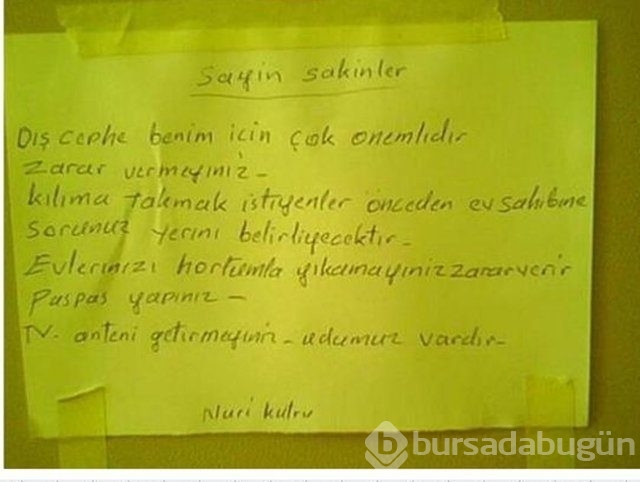 Sayın sakinler
Dış cephe benim için çok onemlidir
Zarar vermeyiniz -
kılıma takmak istiyenler önceden ev sahibine
sorunuz yerini belirliyecektir -
Evlerinizi hortumla yıkamayınız zarar verir
Paspas yapınız -
TV. anteni getirmeyiniz - udumuz vardır -
Nuri
bursadabugün